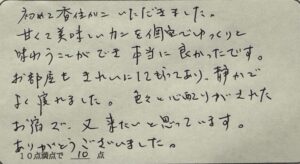 初めて香住ガニ いただきました。
甘くて美味しいカニを個室でゆっくりと
味わうことができ 本当に良かったです。
お部屋も きれいにしてあり、静かで
よく寝れました。色々と心配りがされた
お宿で、又 来たいと思っています。
ありがとうございました。
10点満点で 10 点